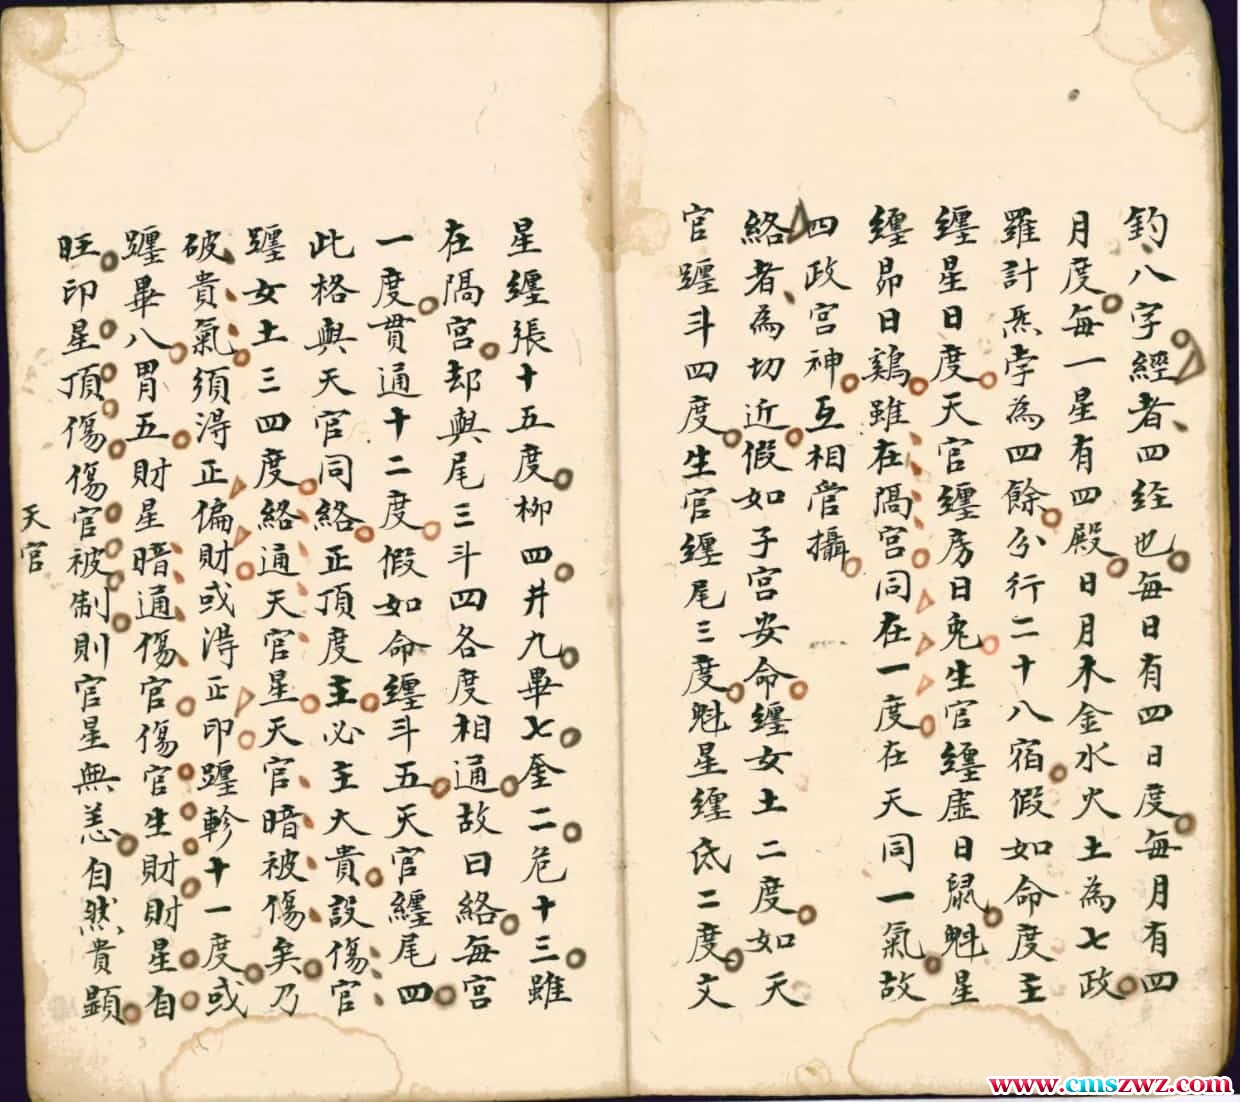 鈞八字經者四经也每日有四日度每月有四
月度每一星有四殿日月木金水火土為七政
羅計炁孛為四餘分行二十八宿假如命度主
纏星日度天官纏房日兎生官纏虛日鼠魁星
纏昴日鷄雖在隔宮同在一度在天同一氣故
四政宮神互相管攝
絡者為切近假如子宮安命纏女土二度如天
官躔斗四度生官纏尾三度魁星纏氐二度文
星纏張十五度柳四井九畢七奎二危十三雖
在隔宮却與尾三斗四各度相通故曰絡每宮
一度贯通十二度假如命纏斗五天官纏尾四
此格與天官同絡正頂度主必主大貴設傷官
躔女土三四度絡通天官星天官暗被傷矣乃
破貴氣須淂正偏財或淂正印躔軫十一度或
躔畢八胃五財星暗通傷官傷官生財財星自
旺印星頂傷傷官被制則官星無恙自然貴顕
天官
www.cmszwz.com